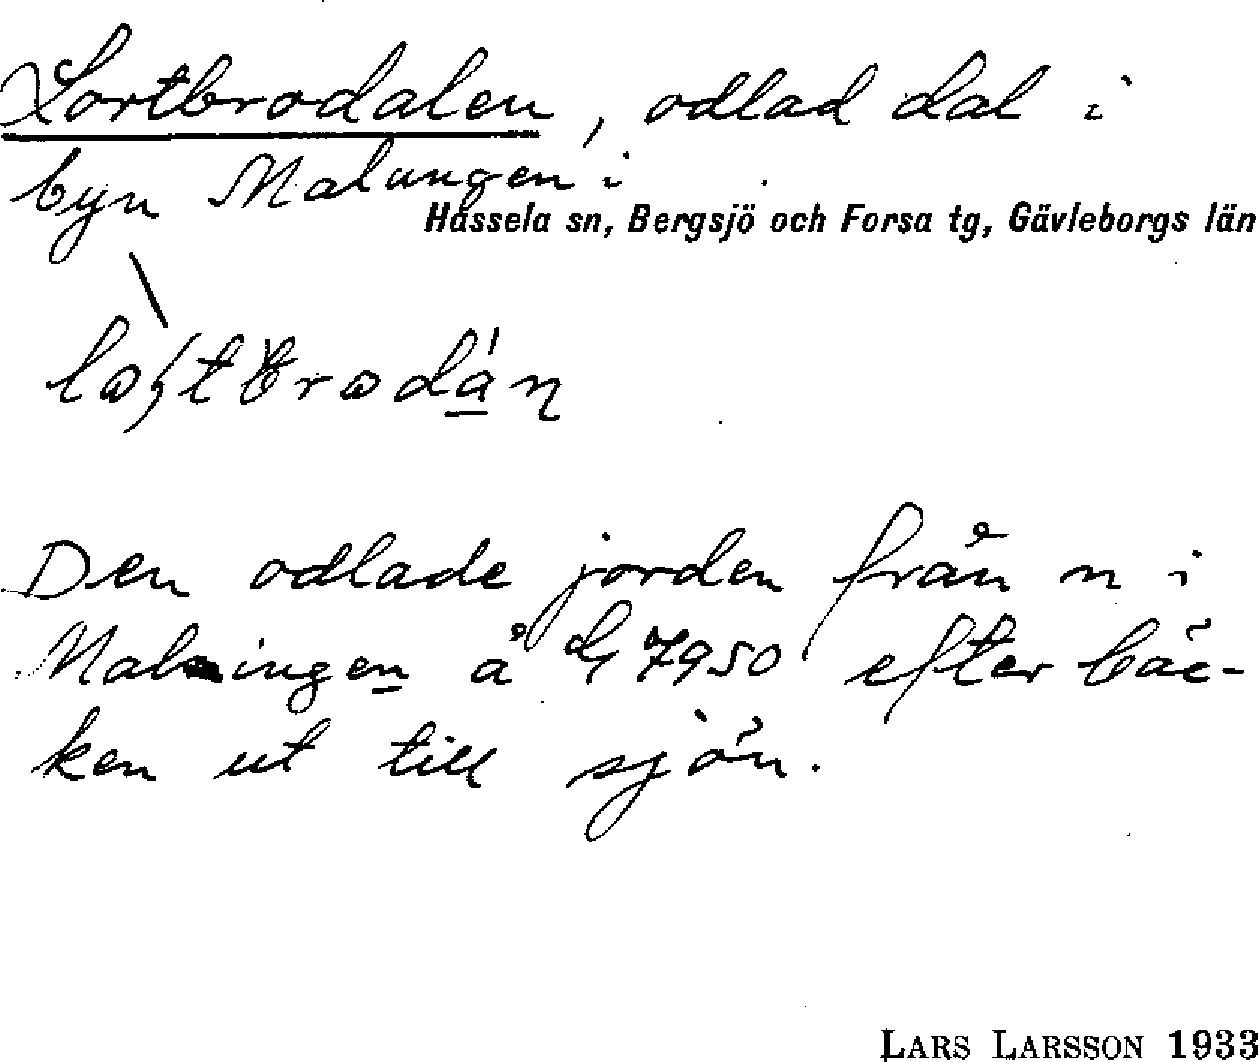 Lortbrodalen, odlad dal i
byn Malungen i
Hassela sn, Bergsjö och Forsa tg, Gävleborgs län
Den odlade jorden från n i
Malningen å G 7950 efter bäc-
ken ut till sjön.
LARS LARSSON 1933